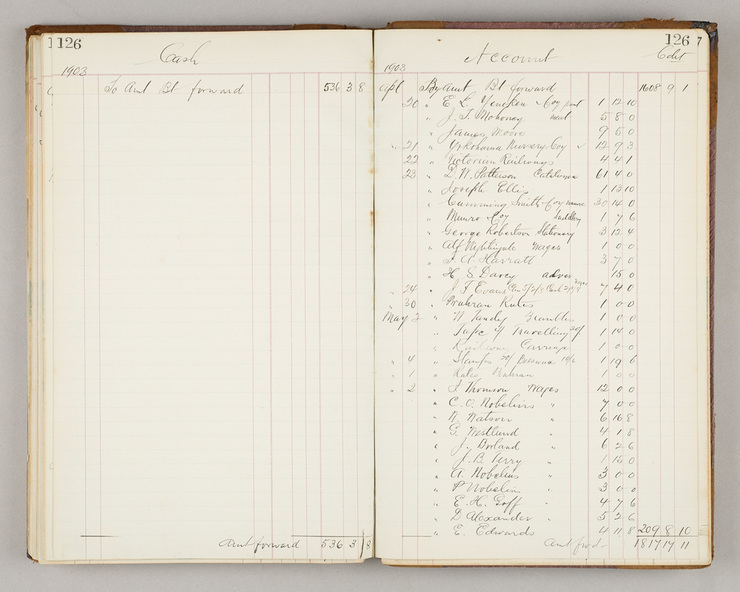 126
Cash
1903
To Amt Bt forward 536 3 8
Amt forward 536 3 8
126 7
Account
1903 Cdt
Apl By amt Bt forward 1608 9 1
20 " E. L. Yencken Coy 1 12 10
" J. F. Mahoney 5 8 0
" James Moore 9 5 0
" 21 " Yokohama Nursery Coy 12 9 3
22 " Victorian Railways 4 4 1
23 " Patterson Catalogue 61 4 0
" Joseph Ellis 1 13 10
" Cumming Smith Coy manure 30 14 0
" Munro Coy Saddlery 1 7 6
" George Robertson Stationery 3 12 4
" Alf Nightingale Wages 1 0 0
" Harratt 3 7 0
" H. S. Davey adver 15 0
" 24 " J. F. Evans 7 4 0
" 30 " Prahran Rates 1 0 0
May 2 " Tandy 1 0 0
" Travelling 1 14 0
" Railway 1 0 0
" 4 " Stamps 1 19 6
" 1 " Rates Prahran 1 0 0
" 2 " Thomson Wages 12 0 0
" C. O. Nobelius " 7 0 0
" Watson " 6 16 8
" G. Westlund " 4 1 8
" J. Borland " 6 2 6
" J. B. Perry " 1 15 0
" A. Nobelius " 3 0 0
" Nobelius " 3 0 0
" E. H. Goff " 4 7 6
" D Alexander " 5 2 6
" E. Edwards 4 11 8 209 8 10
Amt fwd 1817 17 11